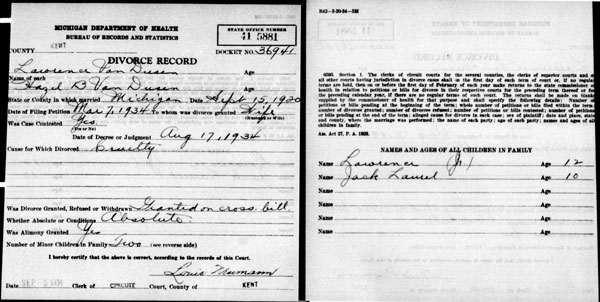 MICHIGAN DEPARTMENT OF HEALTH
BUREAU OF RECORDS AND STATISTICS
STATE OFFICE NUMBER
41 5881
COUNTY KENT
DOCKET NO. 36941
DIVORCE RECORD
Lawrence Van Dusen Age
Name of party
Hazel B Van Dusen Age
State or County in which married Michigan Date Sept 15, 1920
Date of Filing Petition Mar 7, 1934 To whom was divorce granted Wife
(Husband or Wife)
Was Case Contested Yes
(Yes or No)
Date of Decree or Judgment Aug 17, 1934
Cause for Which Divorced Cruelty
Was Divorce Granted, Refused or Withdrawn Granted on cross bill.
Whether Absolute or Conditions Absolute
Was Alimony Granted Yes
Number of Minor Children in Family Two (see reverse side)
I hereby certify that the above is correct, according to the records of this Court.
Louis Neumann
Date SEP Clerk of CIRCUIT Court, County of KENT
6595. Section 1. The clerks of circuit courts for the several counties, the clerks of superior courts and of
all other courts having jurisdiction in divorce cases shall at the first day of each term of court or, if no regular
terms are held, then on or before the first day of February of each year make returns to the state commissioner of
health in relation to petitions or bills for divorce in their respective courts for the preceding term thereof or the
preceding calendar year, if there are no regular terms of such court. The returns shall be made on blanks
supplied by the commissioner of health for that purpose and shall specify the following details: Number of
petitions or bills pending at the beginning of the term; whole number of petitions or bills filed within the term;
petitions or bills pending at the end of the term; alleged cause for divorce in each case; sex of plaintiff; date and place, state
and county, where the marriage was performed; the name of each party; age of each party; names and ages of all
children in family.
Am. Act 27, P. A. 1933.
NAMES AND AGES OF ALL CHILDREN IN FAMILY
Name Lawrence (Jr.) Age 12
Name Jack Laurel Age 10
Name Age
Name Age
Name Age
Name Age
Name Age
Name Age